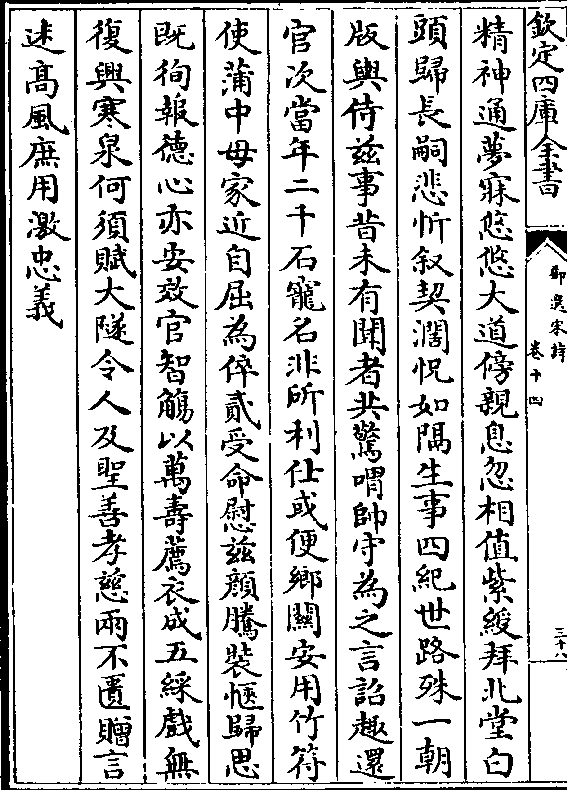 欽定四庫全書
御選宋詩
卷十四
三十八
精神通夢寐悠悠大道傍親息忽相值紫綬拜北堂白
頭歸長嗣悲忻叙契濶怳如隔生事四紀世路殊一朝
版輿侍兹事昔未有聞者共驚喟帥守為之言詔趣還
官次當年二千石寵名非所利仕或便鄉關安用竹符
使蒲中母家近自屈為倅貳受命慰兹顔騰裝愜歸思
既徇報德心亦安效官智觴以萬壽薦衣成五綵戲無
復興寒泉何須賦大隧令人及聖善孝慈兩不匱贈言
述髙風庶用激忠義